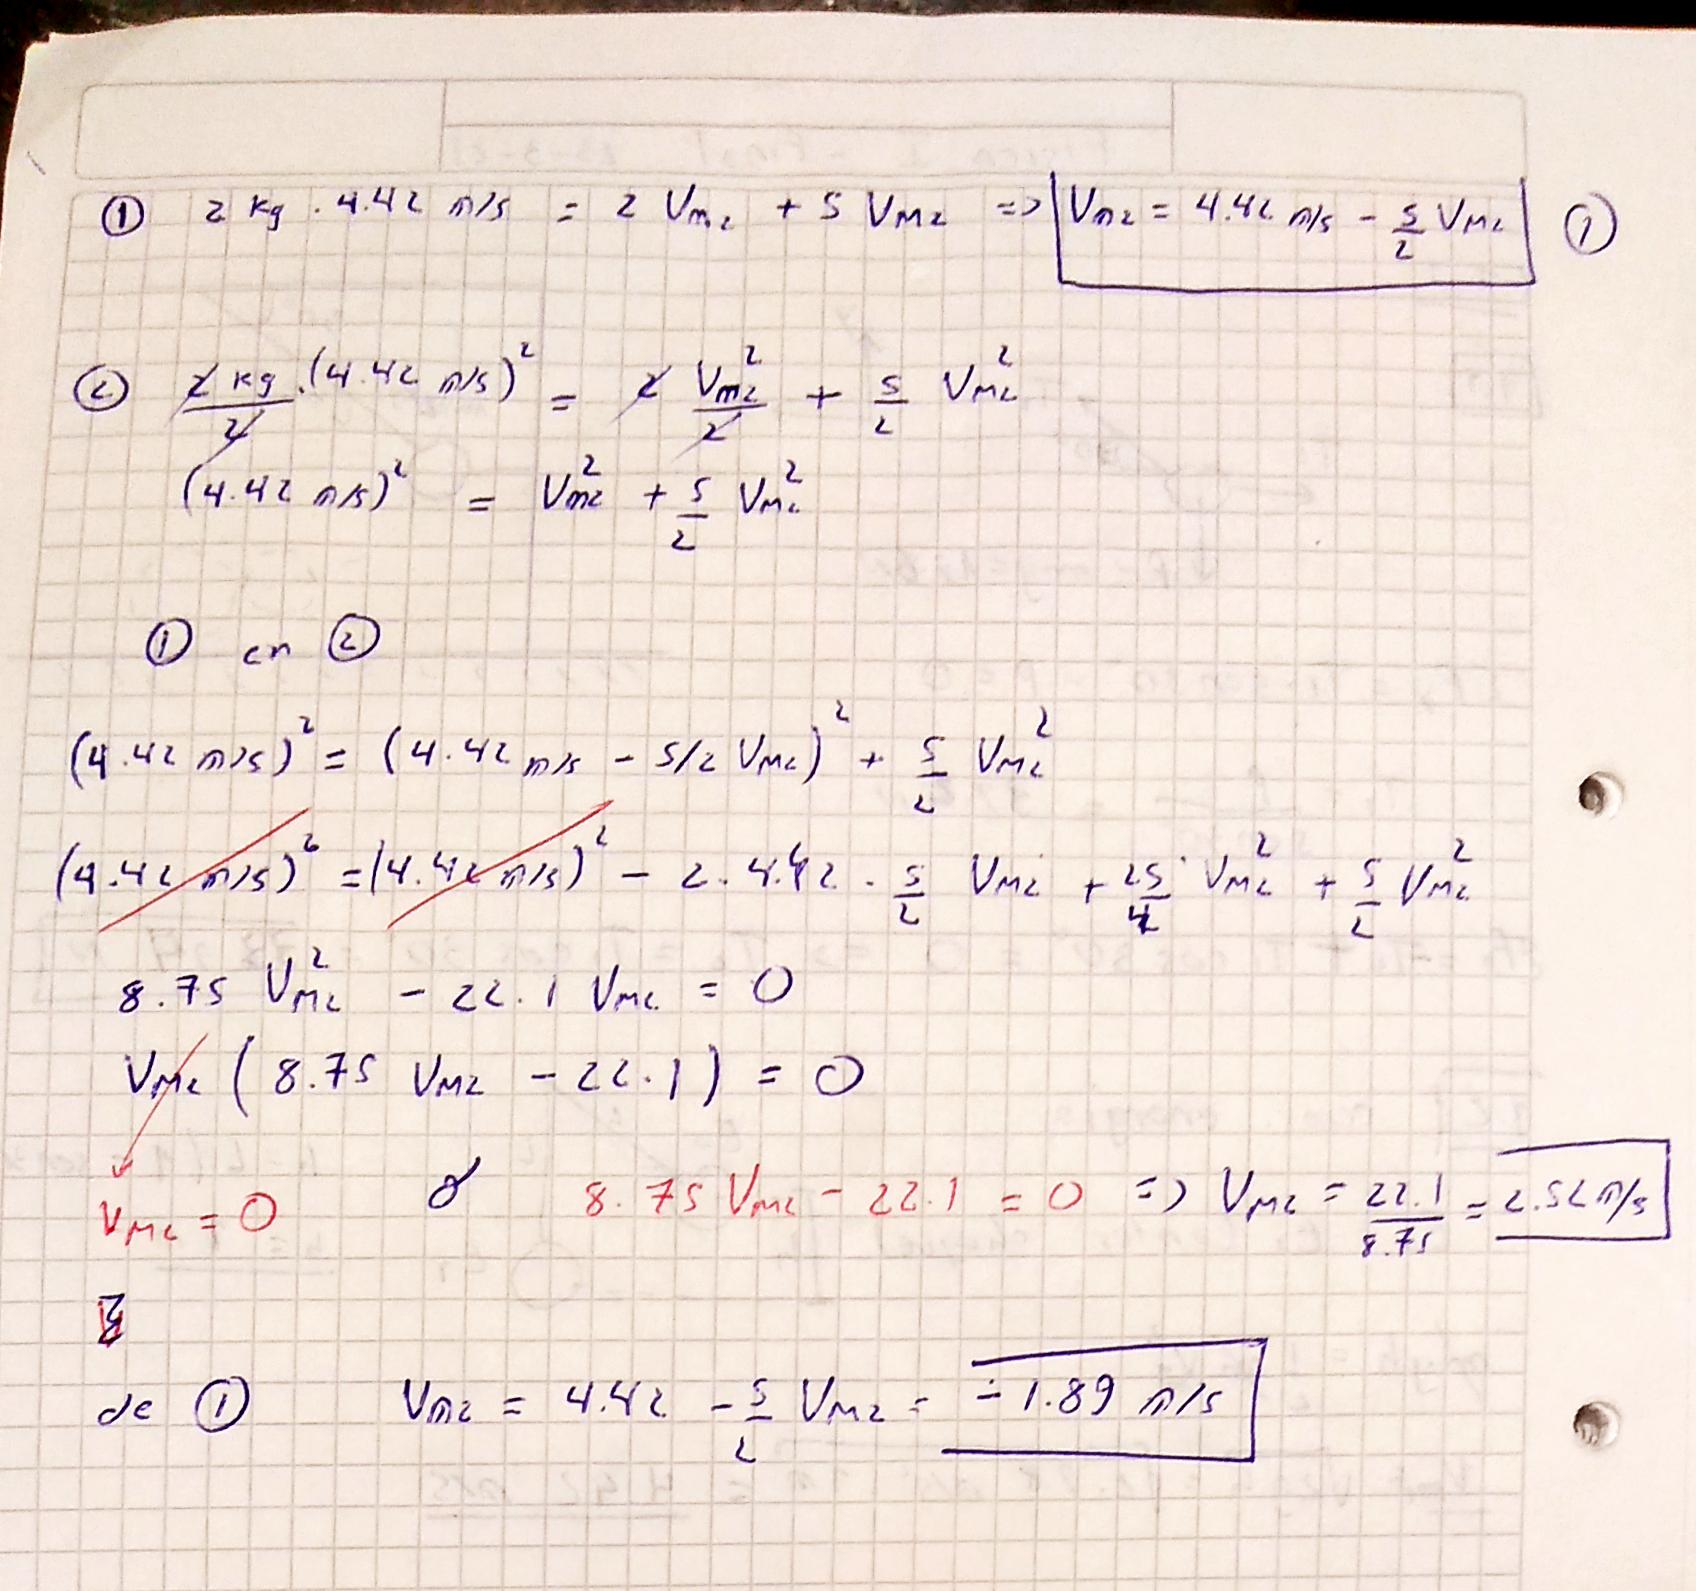 ① 2 kg . 4.42 m/s = 2 Vm2 + 5 VM2 => Vm2 = 4.42 m/s - 5/2 VM2 ①
② 2 kg/2 . (4.42 m/s)² = 2 Vm2²/2 + 5/2 VM2²
(4.42 m/s)² = Vm2² + 5/2 VM2²
① en ②
(4.42 m/s)² = (4.42 m/s - 5/2 VM2)² + 5/2 VM2²
(4.42 m/s)² = (4.42 m/s)² - 2. 4.42 . 5/2 VM2 + 25/4 VM2² + 5/2 VM2²
8.75 VM2² - 22.1 VM2 = 0
VM2 ( 8.75 VM2 - 22.1 ) = 0
VM2 = 0 ó 8.75 VM2 - 22.1 = 0 => VM2 = 22.1/8.75 = 2.52 m/s
de ① Vm2 = 4.42 - 5/2 VM2 = -1.89 m/s